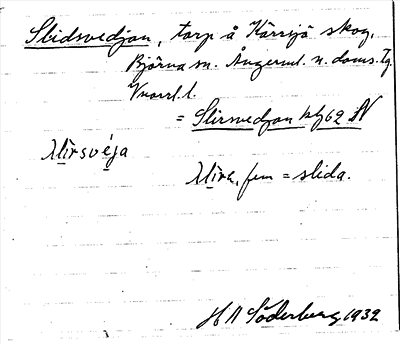 Slidsvedjan, torp å Kärrsjö skog,
Björna sn. Ångerml. n. doms. Tg
Vnorrl. l.
= Slirsvedjan kbl 62 N
slirsvéja
slira, fem = slida.
H A Söderberg 1932